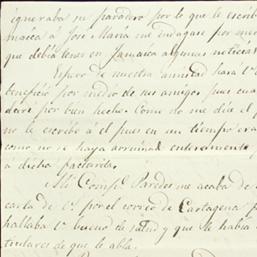 ignoraba su paradero por lo que le escrib
maica á Jose Maria me indagase por
que debia tener en Jamaica algunas noticias
Espero de nuestra amistad hará V.
beneficio por medio de sus amigos pues cua
daré por bien hecho. Como no me dice el p
no le escribo á él pues en un tiempo era
como no se haya arruinado enteramente
á dicha
Mi Comp.e Paredes me acaba de
carta de V. por el correo de Cartagena p
hallaba V. bueno de salud y que se habia
ticulares de que le abla.